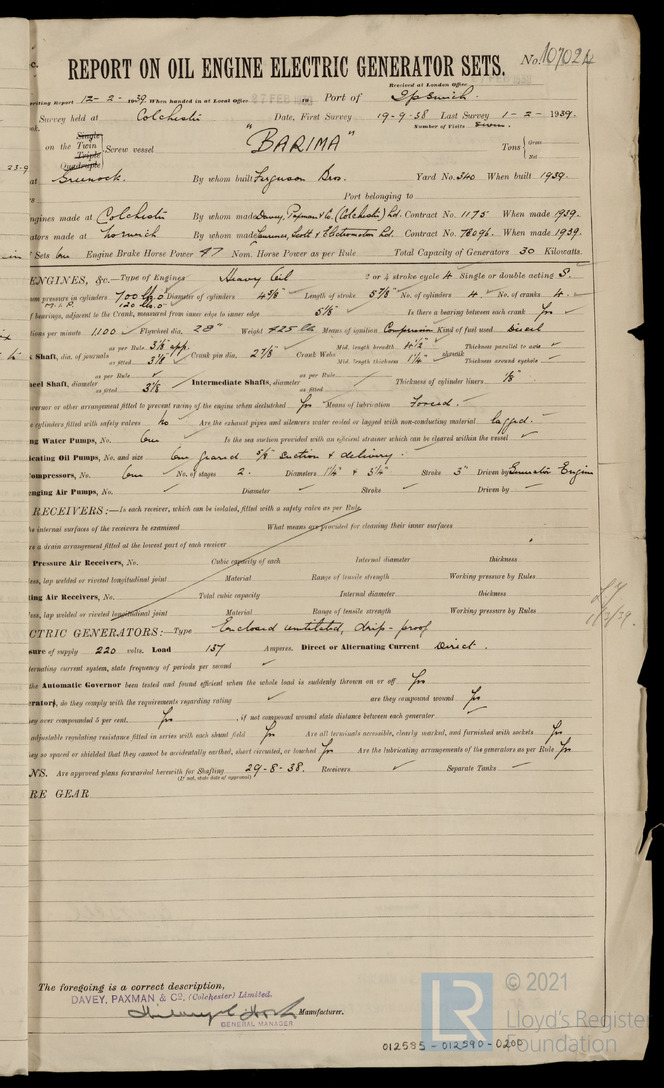 c.
REPORT ON OIL ENGINE ELECTRIC GENERATOR SETS.
No. 107024
Received at London Office
FEB 1939
writing Report 12-2-1939. When handed in at Local Office 27 FEB 1939 19 Port of Ipswich.
Survey held at Colchester Date, First Survey 19-9-38 Last Survey 1-2-1939.
Number of Visits
Single
on the Twin Screw vessel "BARIMA" Tons Gross
Triple
Quadruple Net
23-9
at Greenock. By whom built Ferguson Bros. Yard No. 340 When built 1939.
Port belonging to
ngines made at Colchester By whom made Davey, Paxman & Co. (Colchester) Ltd. Contract No. 1175 When made 1939.
ators made at Norwich By whom made Laurence, Scott & Electromotors Ltd. Contract No. 78096. When made 1939.
Sets One Engine Brake Horse Power 47 Nom. Horse Power as per Rule Total Capacity of Generators 30 Kilowatts.
ENGINES, &c.—Type of Engines Heavy Oil 2 or 4 stroke cycle 4 Single or double acting S.
um pressure in cylinders 700 lb. Diameter of cylinders 4 5/8" Length of stroke 5 7/8" No. of cylinders 4. No. of cranks 4.
M.I.P. 120 lb.
f bearings, adjacent to the Crank, measured from inner edge to inner edge 5 5/8" Is there a bearing between each crank Yes
tions per minute 1100 Flywheel dia. 28" Weight 425 lb Means of ignition Compression Kind of fuel used Diesel
k Shaft, dia. of journals as per Rule 3 1/8 app. as fitted 3 1/8 Crank pin dia. 2 7/8 Crank Webs Mid. length breadth Mid. length thickness 1 1/4" shrunk Thickness parallel to axis Thickness around eyehole
heel Shaft, diameter as per Rule as fitted 3 1/8 Intermediate Shafts, diameter as per Rule as fitted Thickness of cylinder liners
overnor or other arrangement fitted to prevent racing of the engine when declutched Yes Means of lubrication Forced.
e cylinders fitted with safety valves No Are the exhaust pipes and silencers water cooled or lagged with non-conducting material lagged.
ng Water Pumps, No. One Is the sea suction provided with an efficient strainer which can be cleared within the vessel
icating Oil Pumps, No. and size One geared 5/8" suction & delivery.
ompressors, No. One No. of stages 2. Diameters 1 1/4" & 3 1/4" Stroke 3" Driven by Generator Engine
enging Air Pumps, No. Diameter Stroke Driven by
RECEIVERS:—Is each receiver, which can be isolated, fitted with a safety valve as per Rule
he internal surfaces of the receivers be examined What means are provided for cleaning their inner surfaces
re a drain arrangement fitted at the lowest part of each receiver
Pressure Air Receivers, No. Cubic capacity of each Internal diameter thickness
less, lap welded or riveted longitudinal joint Material Range of tensile strength Working pressure by Rules
ting Air Receivers, No. Total cubic capacity Internal diameter thickness
less, lap welded or riveted longitudinal joint Material Range of tensile strength Working pressure by Rules
CTRIC GENERATORS:—Type Enclosed ventilated, drip-proof
sure of supply 220 volts. Load 137 Amperes. Direct or Alternating Current Direct.
ternating current system, state frequency of periods per second
the Automatic Governor been tested and found efficient when the whole load is suddenly thrown on or off Yes
erators, do they comply with the requirements regarding rating are they compound wound Yes
ey over compounded 5 per cent. Yes, if not compound wound state distance between each generator
adjustable regulating resistance fitted in series with each shunt field Yes Are all terminals accessible, clearly marked, and furnished with sockets Yes
ey so spaced or shielded that they cannot be accidentally earthed, short circuited, or touched Yes Are the lubricating arrangements of the generators as per Rule Yes
NS. Are approved plans forwarded herewith for Shafting 29-8-38. Receivers Separate Tanks
(If not, state date of approval)
RE GEAR
The foregoing is a correct description,
DAVEY, PAXMAN & Co. (Colchester) Limited.
Manufacturer.
GENERAL MANAGER
LR © 2021
Lloyd's Register
Foundation
012585-012590-0200